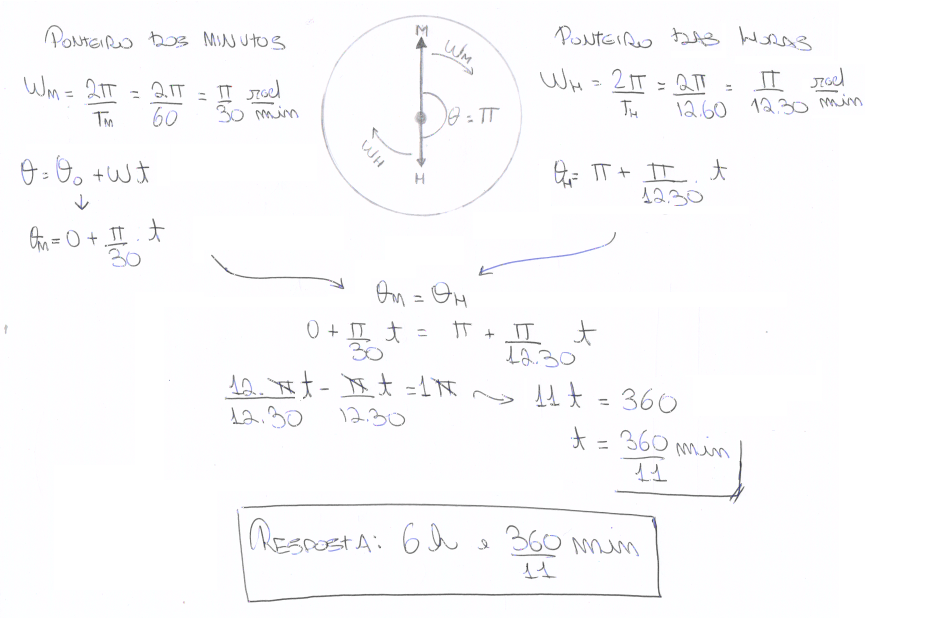 PONTEIRO DOS MINUTOS
WM = 2π/TM = 2π/60 = π/30 rad/min
θ = θ₀ + Wt
↓
θM = 0 + π/30 . t
M
WM
θ = π
WH
H
PONTEIRO DAS HORAS
WH = 2π/TH = 2π/12.60 = π/12.30 rad/min
θH = π + π/12.30 . t
θM = θH
0 + π/30 t = π + π/12.30 t
12.π/12.30 t - π/12.30 t = 1π ⇝ 11t = 360
t = 360/11 min
RESPOSTA: 6h e 360/11 min